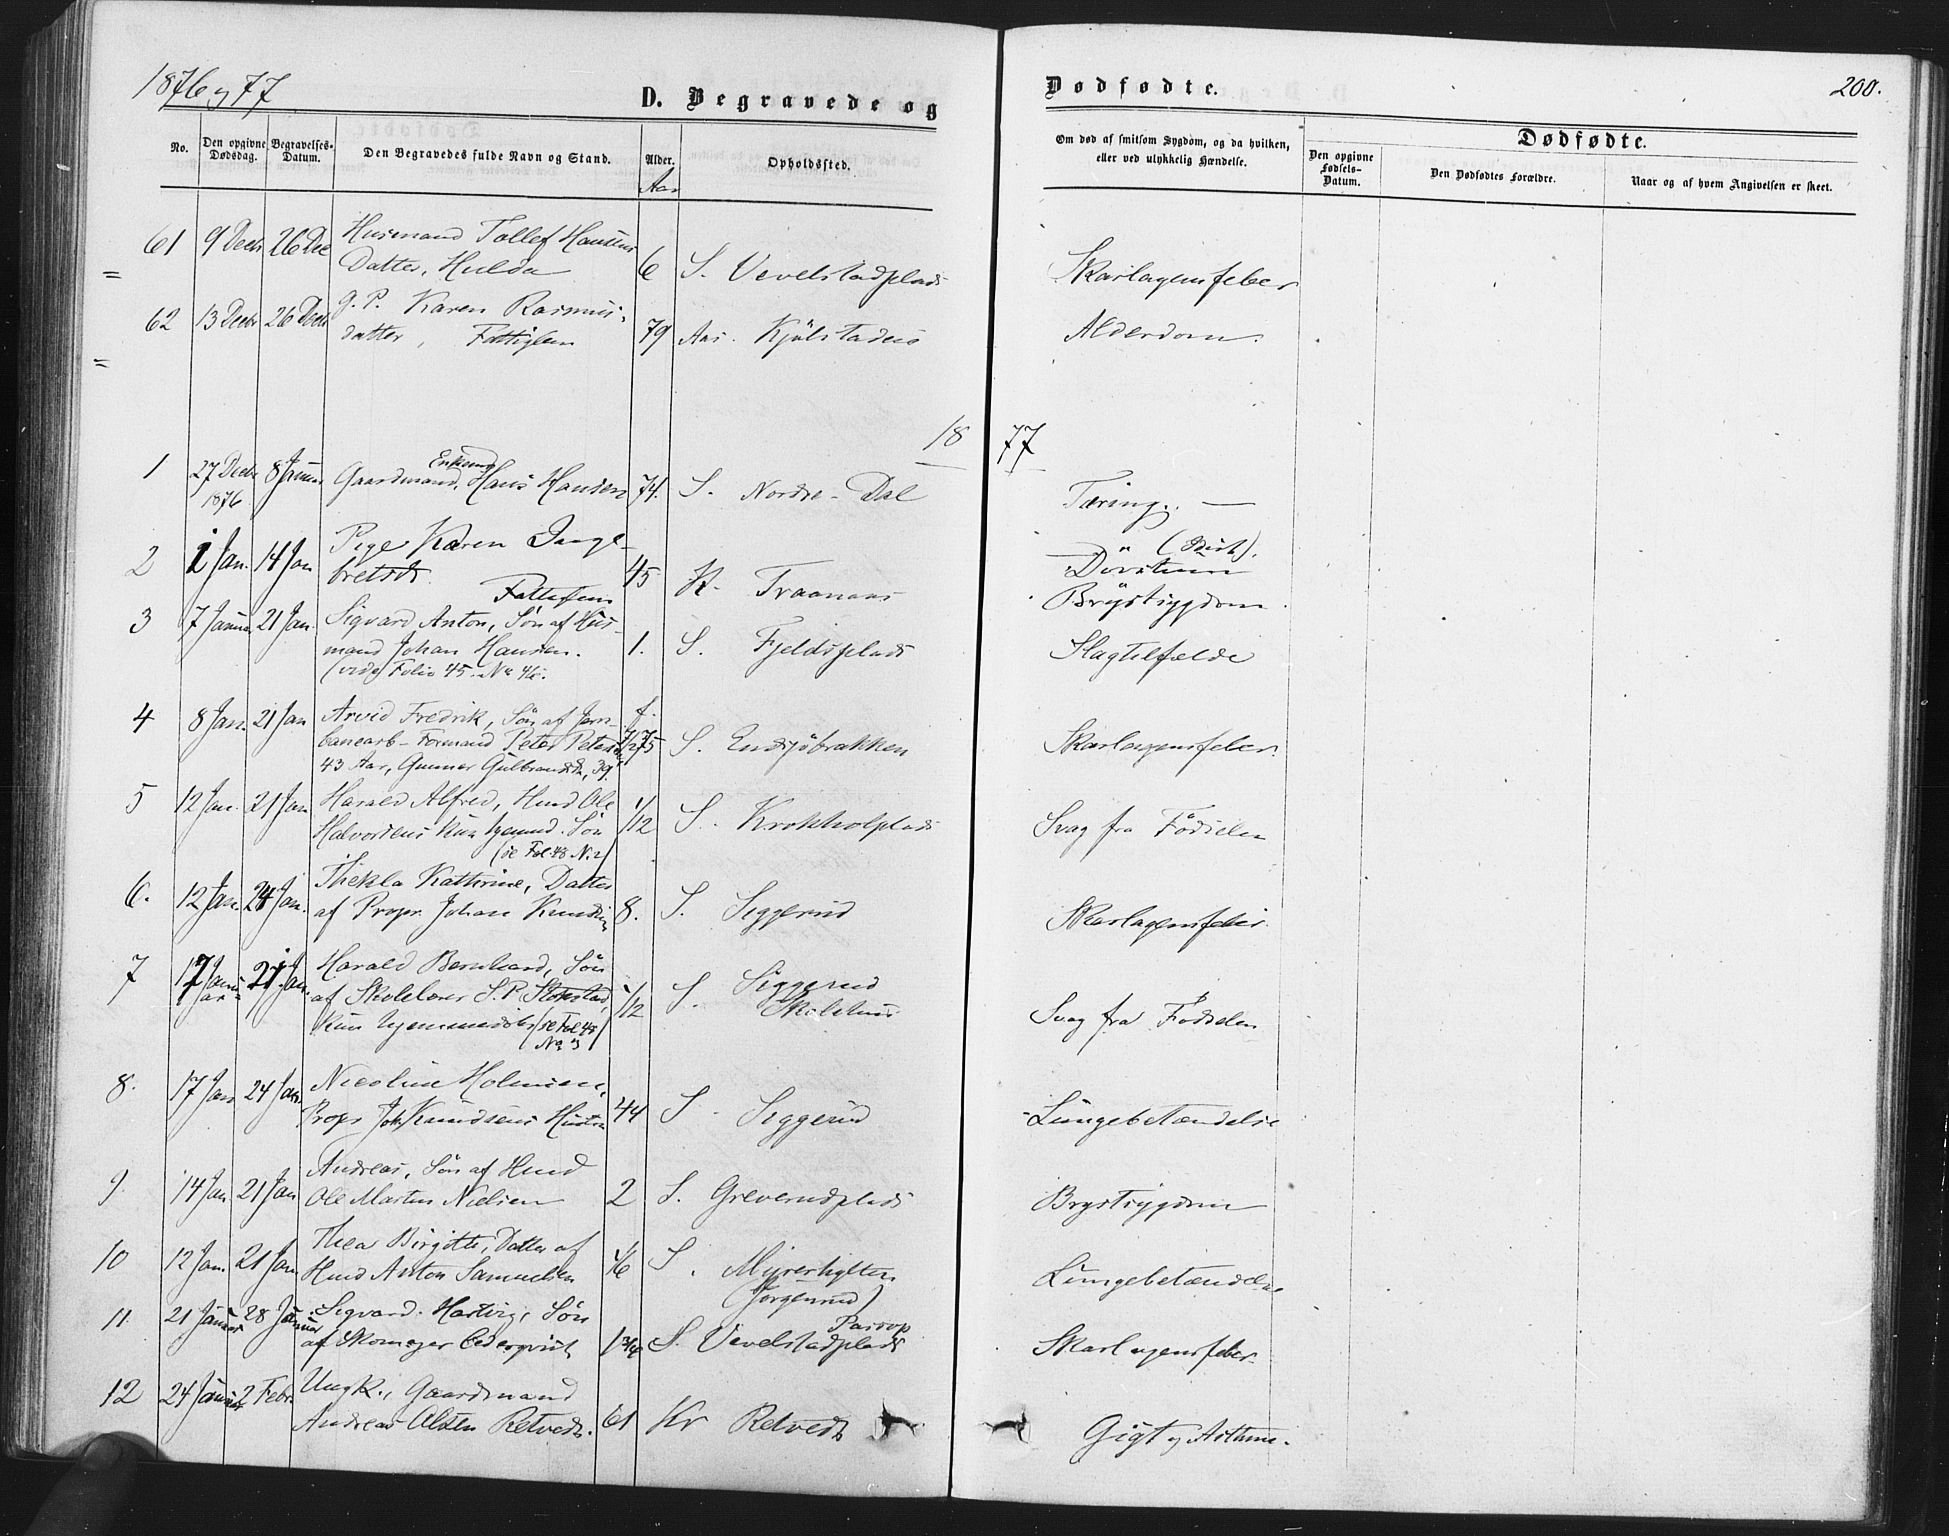 1876 og 77
D. Begravede og
Dødfødte.
200.
No.
Den opgivne Dødsdag.
Begravelses-Datum.
Den Begravedes fulde Navn og Stand.
Alder.
Aar
Opholdssted.
Om død af smitsom Sygdom, og da hvilken,
eller ved ulykkelig Hændelse.
Dødfødte.
Den opgivne Fødsels-Datum.
Den Dødfødtes Forældre.
Naar og af hvem Angivelsen er skeet.
61 9 Decbr 26 Dec Husmand Tollef Hansens
Datter, Hulda 6 S. Vevelstadplads Skarlagensfeber
62 13 Decbr 26 Decbr g. P. Karen Rasmus-
datter, Fattiglem 79 Aas. Kjølstadeie Alderdom.
1877
1 27 Decbr 1876 8 Januar Gaardmand, Enkemd Hans Hansen 74. S. Nordre-Dal Tæring. —
2 1 Jan. 14 Jan Pige Karen Inge-
bretsdr. Fattiglem 45 K. Traanaas
Brystsygdom.
3 7 Januar 21 Jan. Sigvard Anton, Søn af Hus-
mand Johan Hansen. 1. S. Fjeldsplads Slagtilfælde
(vide Folio 45. No 46.
4 8 Jan. 21 Jan Arvid Fredrik, Søn af Jern-
banearb-Formand Peter Petersen S. Endsjøbrakken Skarlagensfeber.
43 Aar, Gunner Gulbrandsdr, 39.
5 12 Jan. 21 Jan Harald Alfred, Husmd Ole
Halvorsens kun hjemmed. Søn 1/12 S. Krokholplads Svag fra Fødselen
(se Fol. 48 No 2)
6. 12 Jan. 24 Jan. Thekla Kathrine, Datter
af Propr. Johan Knudsen 8. S. Siggerud Skarlagensfeber.
7 17 Januar 21 Jan. Harald Bernhard, Søn
af Skolelærer S. P. Skotstad, 1/12 S. Siggerud Skolehus
kun hjemmedøbt (se Fol 48 Svag fra Fødselen
No 3)
8. 17 Jan 24 Jan. Nicoline Holmsen,
Propr Joh. Knudsens Hustru 44 S. Siggerud Lungebetændelse
9. 14 Jan 21 Jan Andreas, Søn af Husmd
Ole Martin Nielsen 2 S. Greverudplads Brystsygdom
10 12 Jan. 21 Jan. Thea Birgitte, Datter af
Husmd Anton Samuelsen S. Myrerhytten Lungebetændelse
(Jørgerud)
11. 21 Januar 28 Januar Sigvard Hartvig, Søn
af Skomager Cederqvist S. Vevelstadplads Skarlagensfeber.
12 24 Januar 2 Febr. Ungk., Gaardmand
Andreas Olsen Retvedt. 61 Kr Retvedt Gigt og Asthma.